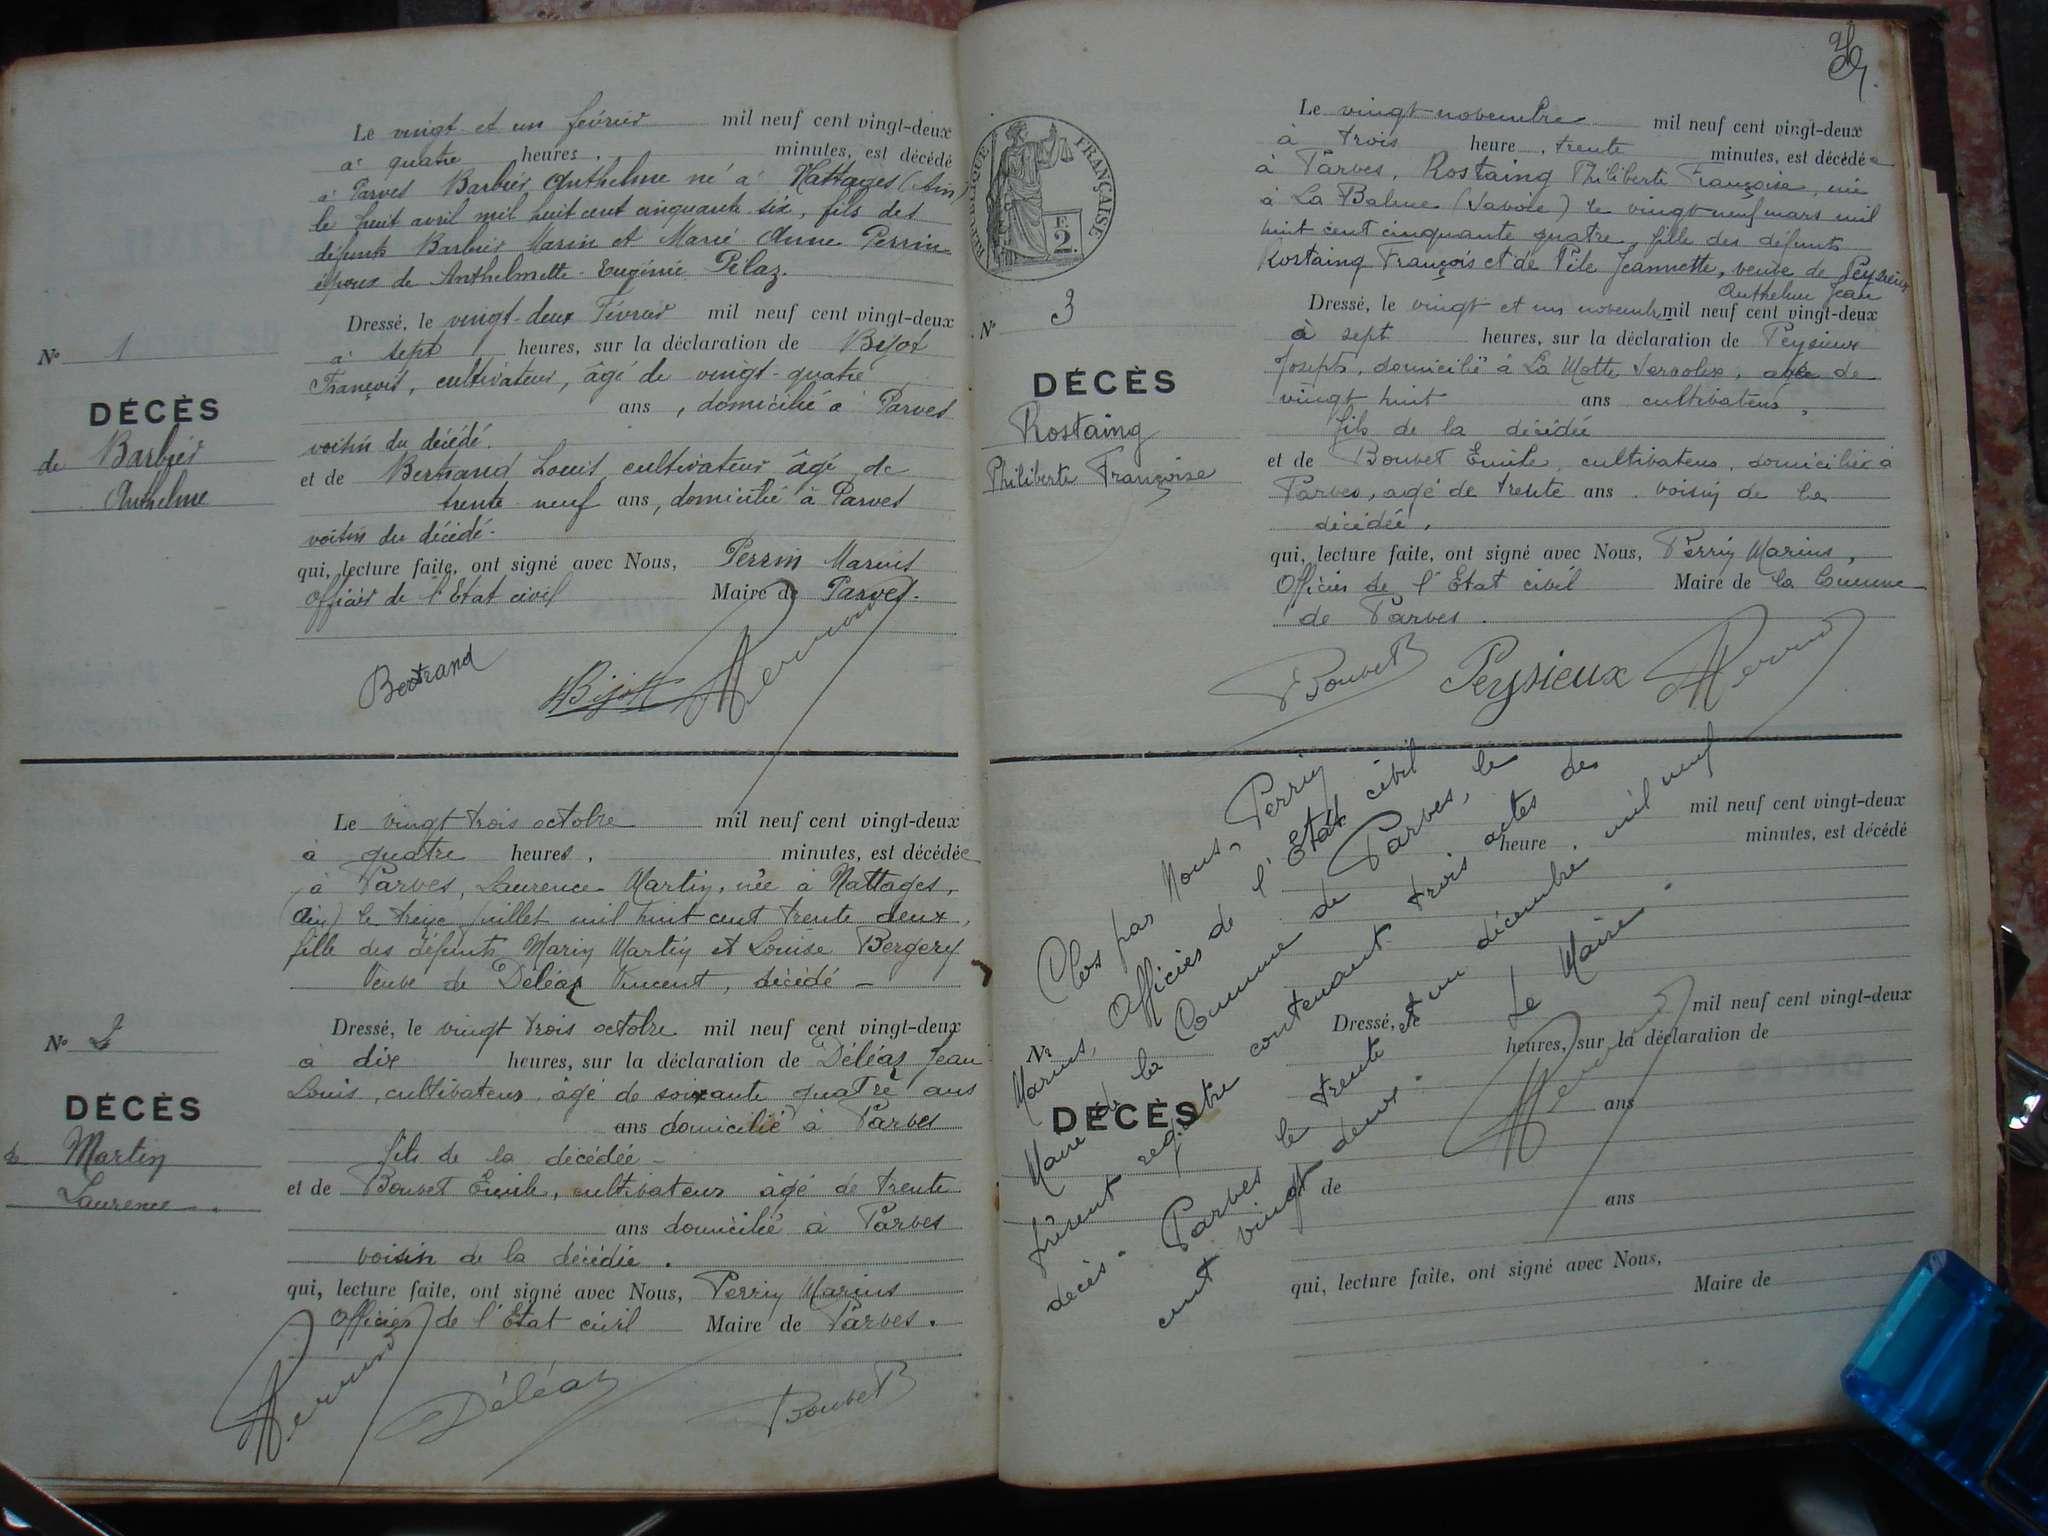 Le vingt et un février mil neuf cent vingt-deux
à quatre heures, minutes, est décédé
à Parves Barbier Anthelme né à Nattages (Ain)
le huit avril mil huit cent cinquante six, fils des
défunts Barbier Marin et Marie Anne Perrin
époux de Anthelmette Eugénie Pélaz.
Dressé, le vingt-deux Février mil neuf cent vingt-deux
à sept heures, sur la déclaration de Bijot
François, cultivateur, âgé de vingt-quatre
ans, domicilié à Parves
voisin du décédé.
et de Bertrand Louis cultivateur âgé de
trente neuf ans, domicilié à Parves
voisin du décédé.
qui, lecture faite, ont signé avec Nous, Perrin Marius
Officier de l'Etat civil Maire de Parves.
Bertrand Bijot Perrin
No 1
DÉCÈS
de Barbier
Anthelme
Le vingt trois octobre mil neuf cent vingt-deux
à quatre heures, minutes, est décédée
à Parves, Laurence Martin, née à Nattages,
(Ain) le treize juillet mil huit cent trente deux,
fille des défunts Marin Martin et Louise Bergery
Veuve de Déléaz Vincent, décédé -
Dressé, le vingt trois octobre mil neuf cent vingt-deux
à dix heures, sur la déclaration de Déléaz Jean
Louis, cultivateur âgé de soixante quatre ans
ans domicilié à Parves
fils de la décédée -
et de Bouvet Emile, cultivateur âgé de trente
ans domicilié à Parves
voisin de la décédée.
qui, lecture faite, ont signé avec Nous, Perrin Marius
Officier de l'Etat civil Maire de Parves.
Perrin Déléaz Bouvet
No 2
DÉCÈS
de Martin
Laurence
RÉPUBLIQUE FRANÇAISE
F.
2.
Le vingt novembre mil neuf cent vingt-deux
à trois heure, trente minutes, est décédée
à Parves, Rostaing Philiberte Françoise, née
à La Balme (Savoie) le vingt neuf mars mil
huit cent cinquante quatre, fille des défunts
Rostaing François et de Pile Jeannette, veuve de Peysieux
Anthelme Jean
Dressé, le vingt et un novembre mil neuf cent vingt-deux
à sept heures, sur la déclaration de Peysieux
Joseph, domicilié à La Motte Servolex, agé de
vingt huit ans cultivateur,
fils de la décédée
et de Bouvet Emile, cultivateur, domicilié à
Parves, agé de trente ans voisin de la
décédée.
qui, lecture faite, ont signé avec Nous, Perrin Marius,
Officier de l'Etat civil Maire de la Commune
de Parves.
Bouvet Peysieux Perrin
No 3
DÉCÈS
Rostaing
Philiberte Françoise
Clos par Nous, Perrin
Marius, Officier de l'Etat civil
Maire de la Commune de Parves, le
présent registre contenant trois actes de
décès. Parves le trente et un décembre mil neuf
cent vingt deux.
Le Maire
Perrin
mil neuf cent vingt-deux
heure, minutes, est décédé
Dressé, le mil neuf cent vingt-deux
heures, sur la déclaration de
ans
de
ans
qui, lecture faite, ont signé avec Nous,
Maire de
No
DÉCÈS